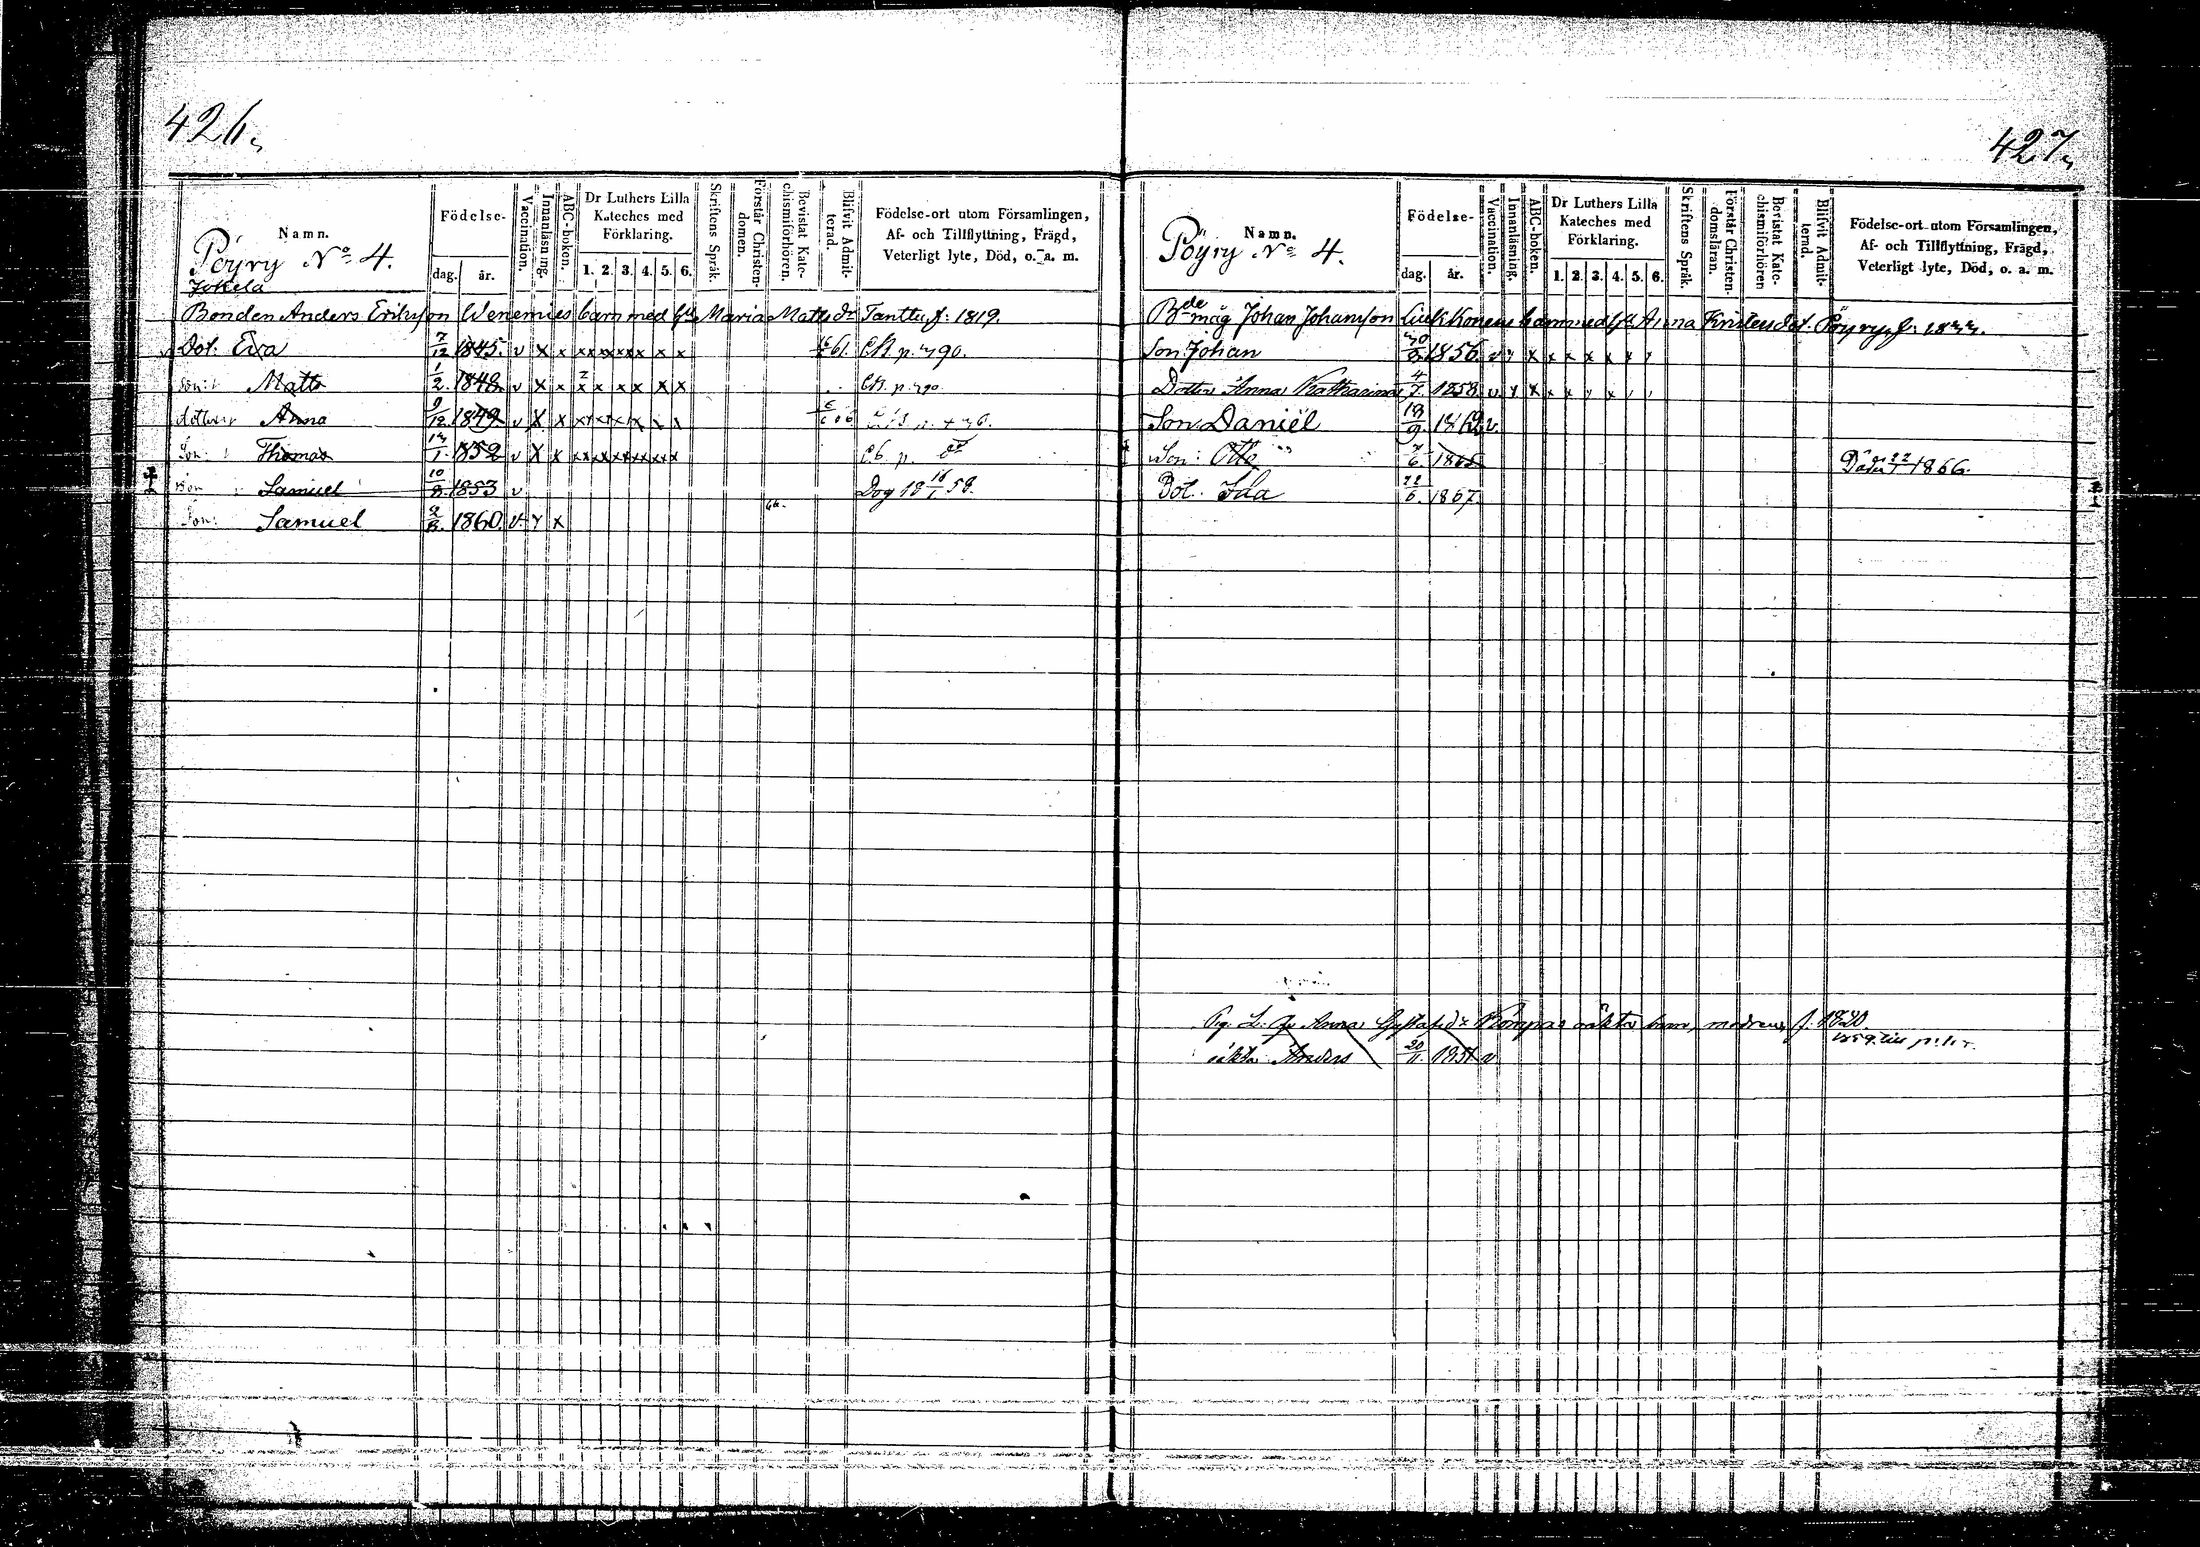 426.
Namn. Födelse- Vaccination. Innanläsning. ABC-boken. Dr Luthers Lilla Kateches med Förklaring. Skriftens Språk. Förstår Christendomen. Bevistat Katechismiförhören. Blifvit Admitterad. Födelse-ort utom Församlingen, Af- och Tillflyttning, Frägd, Veterligt lyte, Död, o. a. m.
Pöyry No 4. dag. år. 1. 2. 3. 4. 5. 6.
Jokela
Bonden Anders Eriksson Wenemies barn med hu Maria Matts dr Tanttu f: 1819.
Dot: Eva 7/12 1845. v x x x x x x x x x 61. CB. p. 290.
Son: Matts 1/2. 1848 v x x x x x x x x CB. p. 290
Anna 9/12 1849 v x x x x x x x x
Son: Thomas 1852 v x x x x x x x x x C.B. p.
Son Samuel 10/8 1853 v Dog 18 16/1 58.
Son: Samuel 1860. v. x
427.
Namn. Födelse- Vaccination. Innanläsning. ABC-boken. Dr Luthers Lilla Kateches med Förklaring. Skriftens Språk. Förstår Christendomsläran. Bevistat Katechismiförhören Blifvit Admitterad. Födelse-ort utom Församlingen, Af- och Tillflyttning, Frägd, Veterligt lyte, Död, o. a. m.
Pöyry No 4. dag. år. 1. 2. 3. 4. 5. 6.
Bde måg Johan Johansson Liukkonens barn med hu Anna Kristersdot. Pöyry f:
Son Johan 1856. v x x x x x
Dotter Anna Katharina 4/7. 1858. v x x x x x
Son Daniël 18/9 1862 v.
Son: Otto 1865 Döder 1866.
Dot. Ida 22/6. 1867.
Anna Gustafsdr Kompas oäkta barn, modren f. 1820.
oäkta Anders 20/11. 1851 v